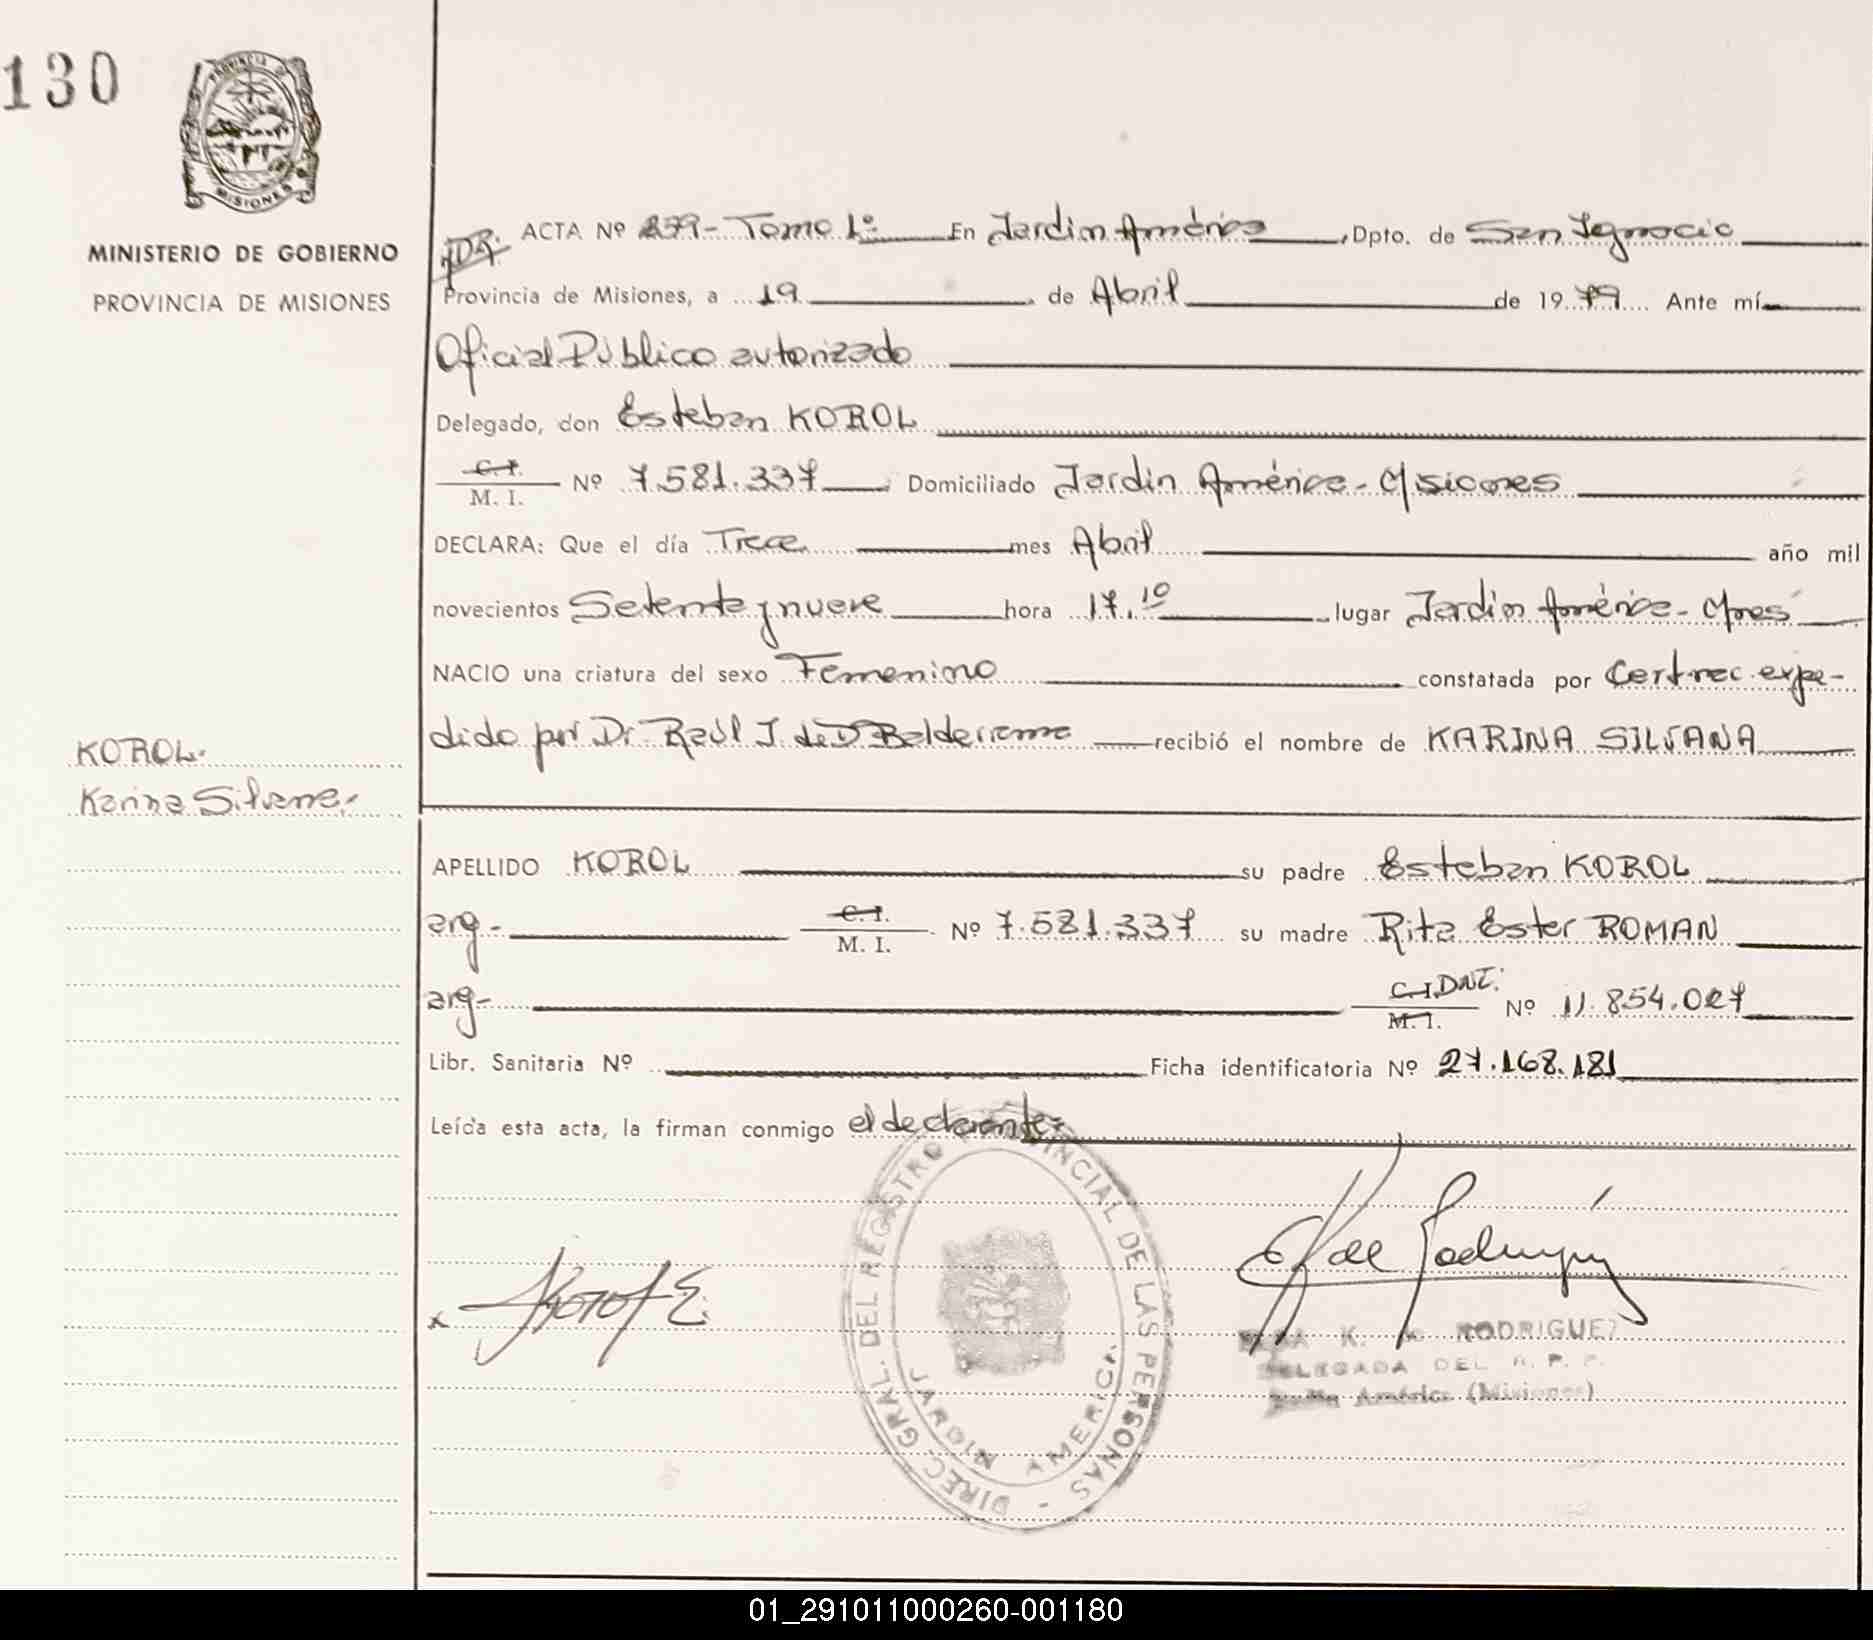 130
PROVINCIA DE
MISIONES
MINISTERIO DE GOBIERNO
PROVINCIA DE MISIONES
ACTA Nº 279 - Tomo 1º En Jardin América, Dpto. de San Ignacio
Provincia de Misiones, a 19 de Abril de 1979 Ante mí
Oficial Público autorizado
Delegado, don Esteban KOROL
C.I.
M. I. Nº 7.581.337 Domiciliado Jardin América - Misiones
DECLARA: Que el día Trece mes Abril año mil
novecientos Setenta y nueve hora 17.10 lugar Jardin América - Mnes
NACIO una criatura del sexo Femenino constatada por Cert. expe-
dido por Dr. Raúl J. de D. Balderrama recibió el nombre de KARINA SILVANA
KOROL.
Karina Silvana.
APELLIDO KOROL su padre Esteban KOROL
arg- C.I.
M. I. Nº 7.581.337 su madre Rita Ester ROMAN
arg- C.I. DNI.
M. I. Nº 11.854.027
Libr. Sanitaria Nº Ficha identificatoria Nº 27.168.181
Leída esta acta, la firman conmigo el declarante
DIREC. GRAL. DEL REGISTRO PROVINCIAL DE LAS PERSONAS -
JARDIN AMERICA
x Korol E.
K. RODRIGUEZ
DELEGADA DEL R. P. P.
América (Misiones)
01_291011000260-001180